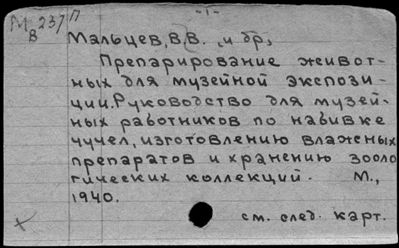 -1-
М 237 П
В
Мальцев, В.В., и др,
Препарирование живот-
ных для музейной экспози-
ции. Руководство для музей-
ных работников по набивке
чучел, изготовлению влажных
препаратов и хранению зооло
гических коллекций. М.,
1940.
см. след. карт.